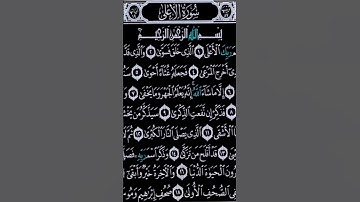 سُورَةُ الأَعْلَى
بِسْمِ اللَّهِ الرَّحْمَٰنِ الرَّحِيمِ
رَبِّكَ الْأَعْلَى ١ الَّذِي خَلَقَ فَسَوَّىٰ ٢ وَالَّذِي قَدَّ
ي أَخْرَجَ الْمَرْعَىٰ ٤ فَجَعَلَهُ غُثَاءً أَحْوَىٰ ٥
إِلَّا مَا شَاءَ اللَّهُ إِنَّهُ يَعْلَمُ الْجَهْرَ وَمَا يَخْفَىٰ ٧
فَذَكِّرْ إِن نَّفَعَتِ الذِّكْرَىٰ ٩ سَيَذَّكَّرُ مَن يَخْ
الْأَشْقَى ١١ الَّذِي يَصْلَى النَّارَ الْكُبْرَىٰ ١٢
يَىٰ ١٣ قَدْ أَفْلَحَ مَن تَزَكَّىٰ ١٤ وَذَكَرَ اسْمَ رَبِّهِ فَصَلَّ
رُونَ الْحَيَوٰةَ الدُّنْيَا ١٦ وَالْآخِرَةُ خَيْرٌ وَأَبْقَىٰ
ي الصُّحُفِ الْأُولَىٰ ١٨ صُحُفِ إِبْرَاهِيمَ وَمُو